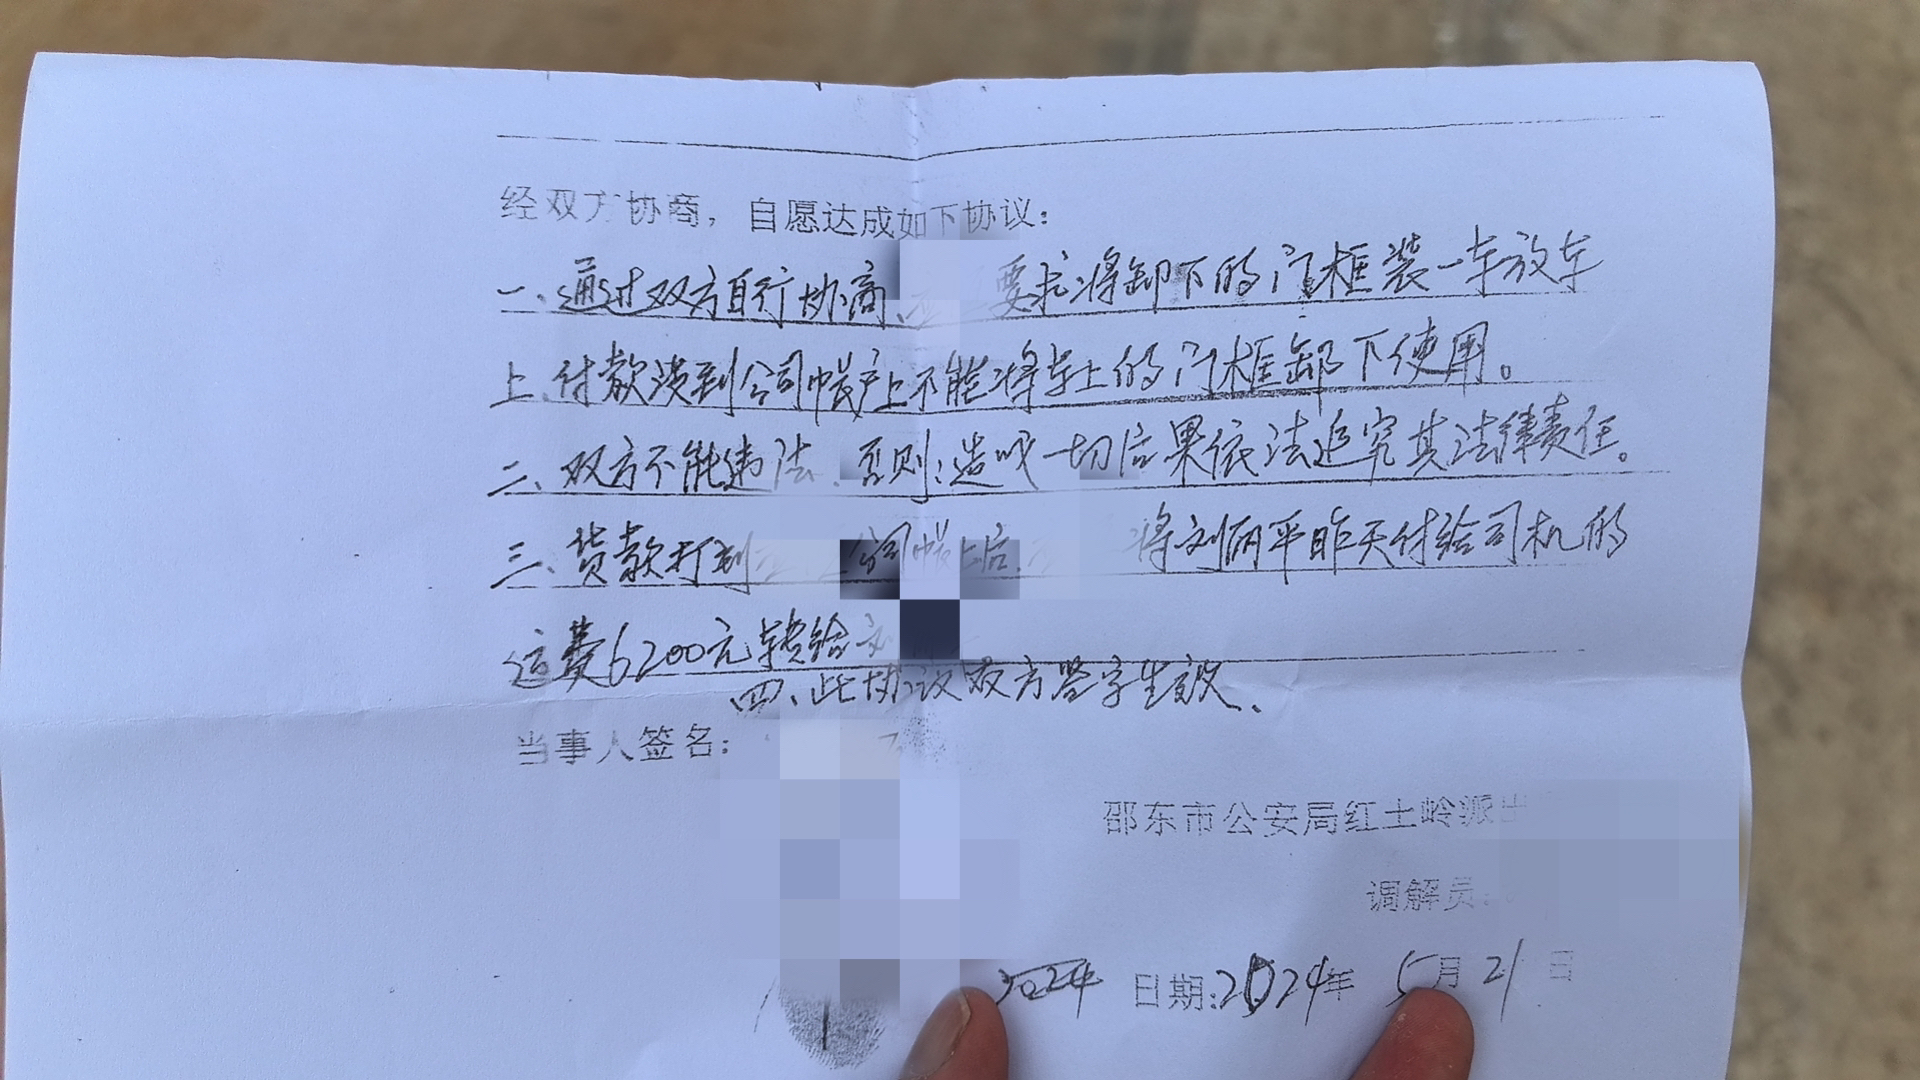 经双方协商，自愿达成如下协议：
一、通过双方自行协商、要求将卸下的门框装一车放车
上、付款没到公司帐户上不能将车上的门框卸下使用。
二、双方不能违法、否则：造成一切后果依法追究其法律责任。
三、货款打到公司帐上后、将刘丙平昨天付给司机的
运费6200元转给
四、此协议双方签字生效、
当事人签名：
邵东市公安局红土岭派出
调解员：
2024 日期：2024年 5月21日